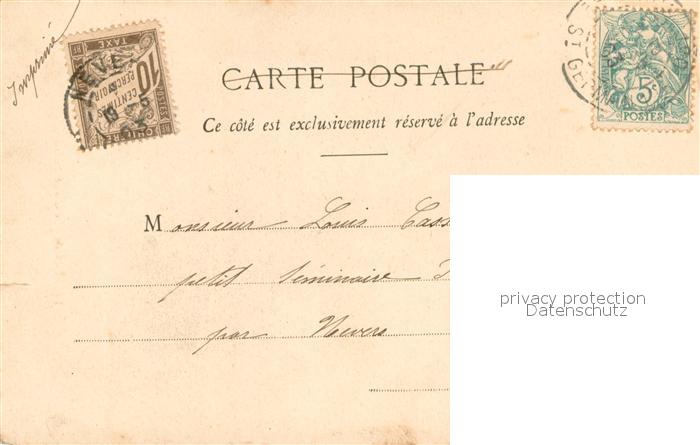 Imprimé
10 CENTIMES
A PERCEVOIR
TAXE
RF
NEVE
5c
POSTES
ST GERMAIN
CARTE POSTALE
Ce côté est exclusivement réservé à l'adresse
Monsieur Louis Cass
petit séminaire
par Nevers
privacy protection
Datenschutz